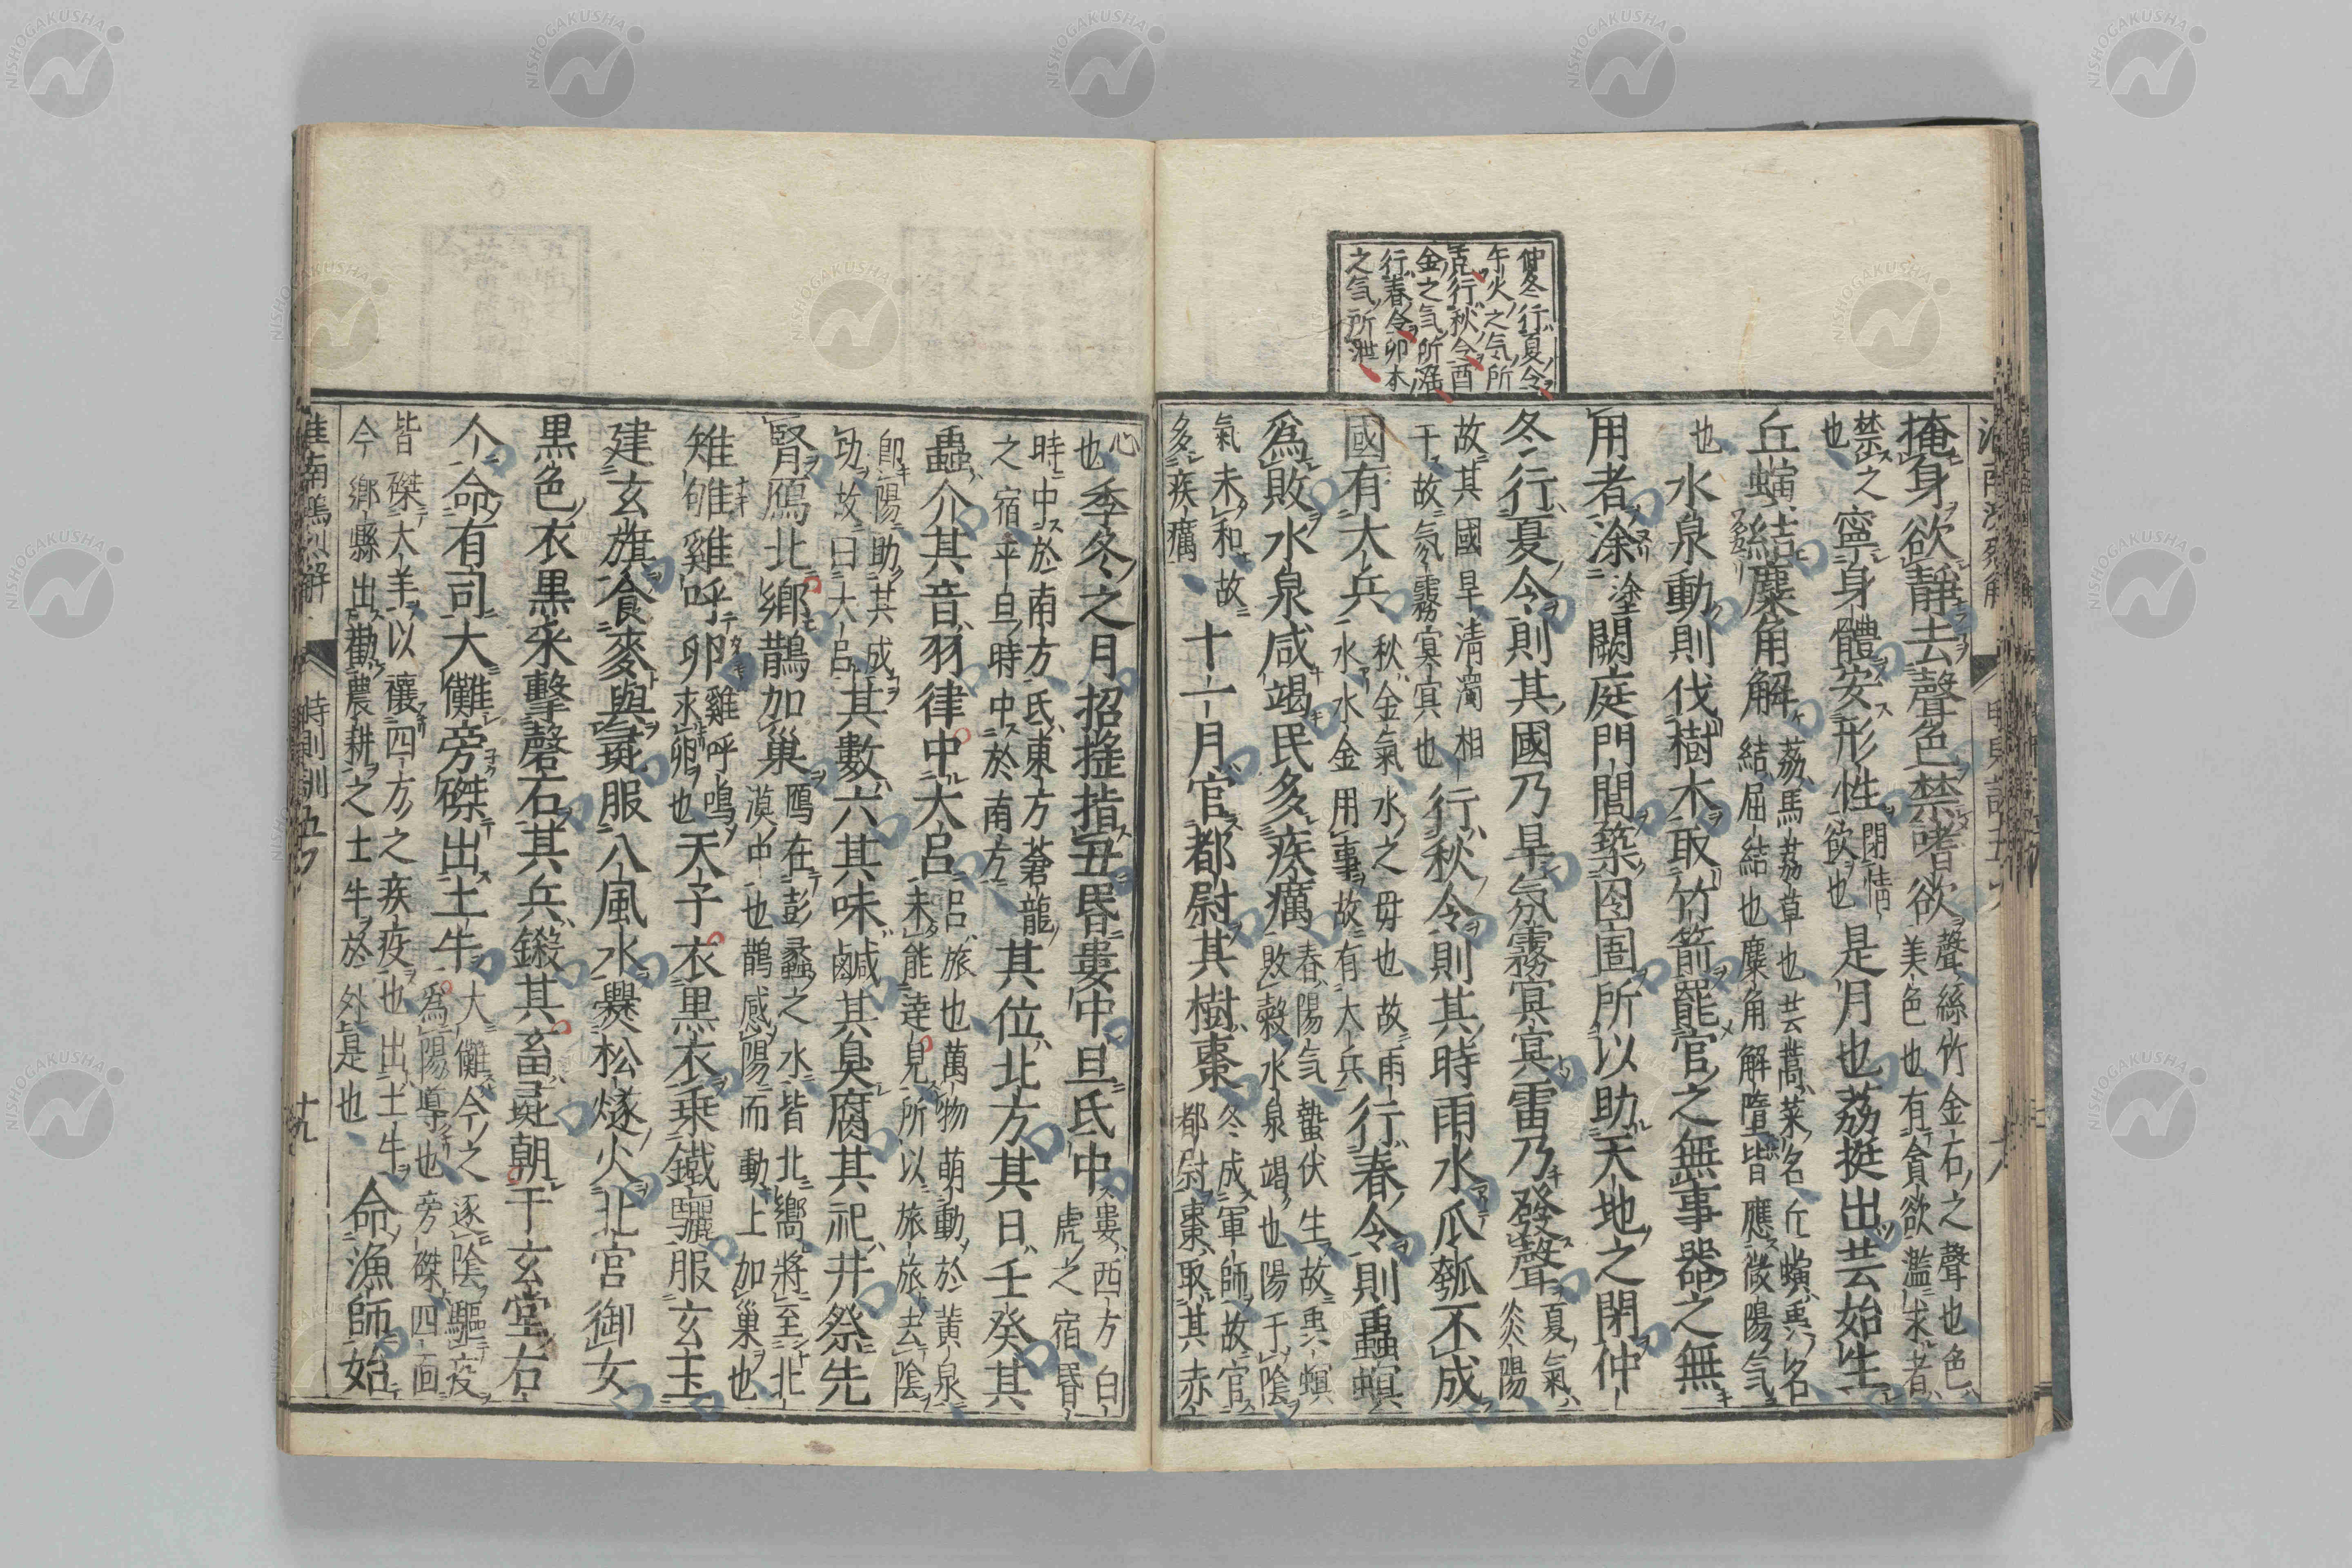 仲冬行夏令
午火之气所
克行秋令酉
金之气所淫
行春令卯木
之气所泄
掩身欲靜去聲色禁嗜欲聲絲竹金石之聲也色美色也有貪欲濫求者
禁之也寧身體安形性閉情欲也是月也荔挺出芸始生
丘螾結麋角解荔馬荔草也芸蒿菜名丘螾䖝名結屈結也麋角解墮皆應微陽气
也水泉動則伐樹木取竹箭罷官之無事器之無
用者涂塗闕庭門閭築囹圄所以助天地之閉仲
冬行夏令則其國乃旱氛霧冥冥雷乃發聲夏氣炎陽
故其國旱清濁相干故氛霧冥冥也行秋令則其時雨水瓜瓠不成
國有大兵秋金氣水之母也故雨水水金用事故有大兵行春令則蟲螟
爲敗水泉咸竭民多疾癘春陽气蟄伏生故䖝螟敗穀水泉竭也陽于陰
氣未和故多疾癘十一月官都尉其樹棗冬成軍師故官都尉棗取其赤
心也季冬之月招搖指丑昏婁中旦氐中婁西方白虎之宿昏
時中於南方氐東方蒼龍之宿平旦時中於南方其位北方其日壬癸其
蟲介其音羽律中大呂呂旅也萬物萌動於黃泉未能達見所以旅旅去陰
卽陽助其成功故曰大呂其數六其味鹹其臭腐其祀井祭先
腎鴈北鄉鵲加巢鴈在彭蠡之水皆北嚮將至北漠中也鵲感陽而動上加巢也
雉雊雞呼卵雞呼鳴求卵也天子衣黑衣乗鐵驪服玄玉
建玄旗食麥與彘服八風水爨松燧火北宮御女
黑色衣黑采擊磬石其兵鎩其畜彘朝于玄堂右
个命有司大儺旁磔出土牛大儺今之逐陰驅疫爲陽導也旁磔四面
皆磔犬羊以禳四方之疾疫也出土牛今鄉縣出勸農耕之土牛於外是也命漁師始
淮南鴻烈解 時則訓五 十九